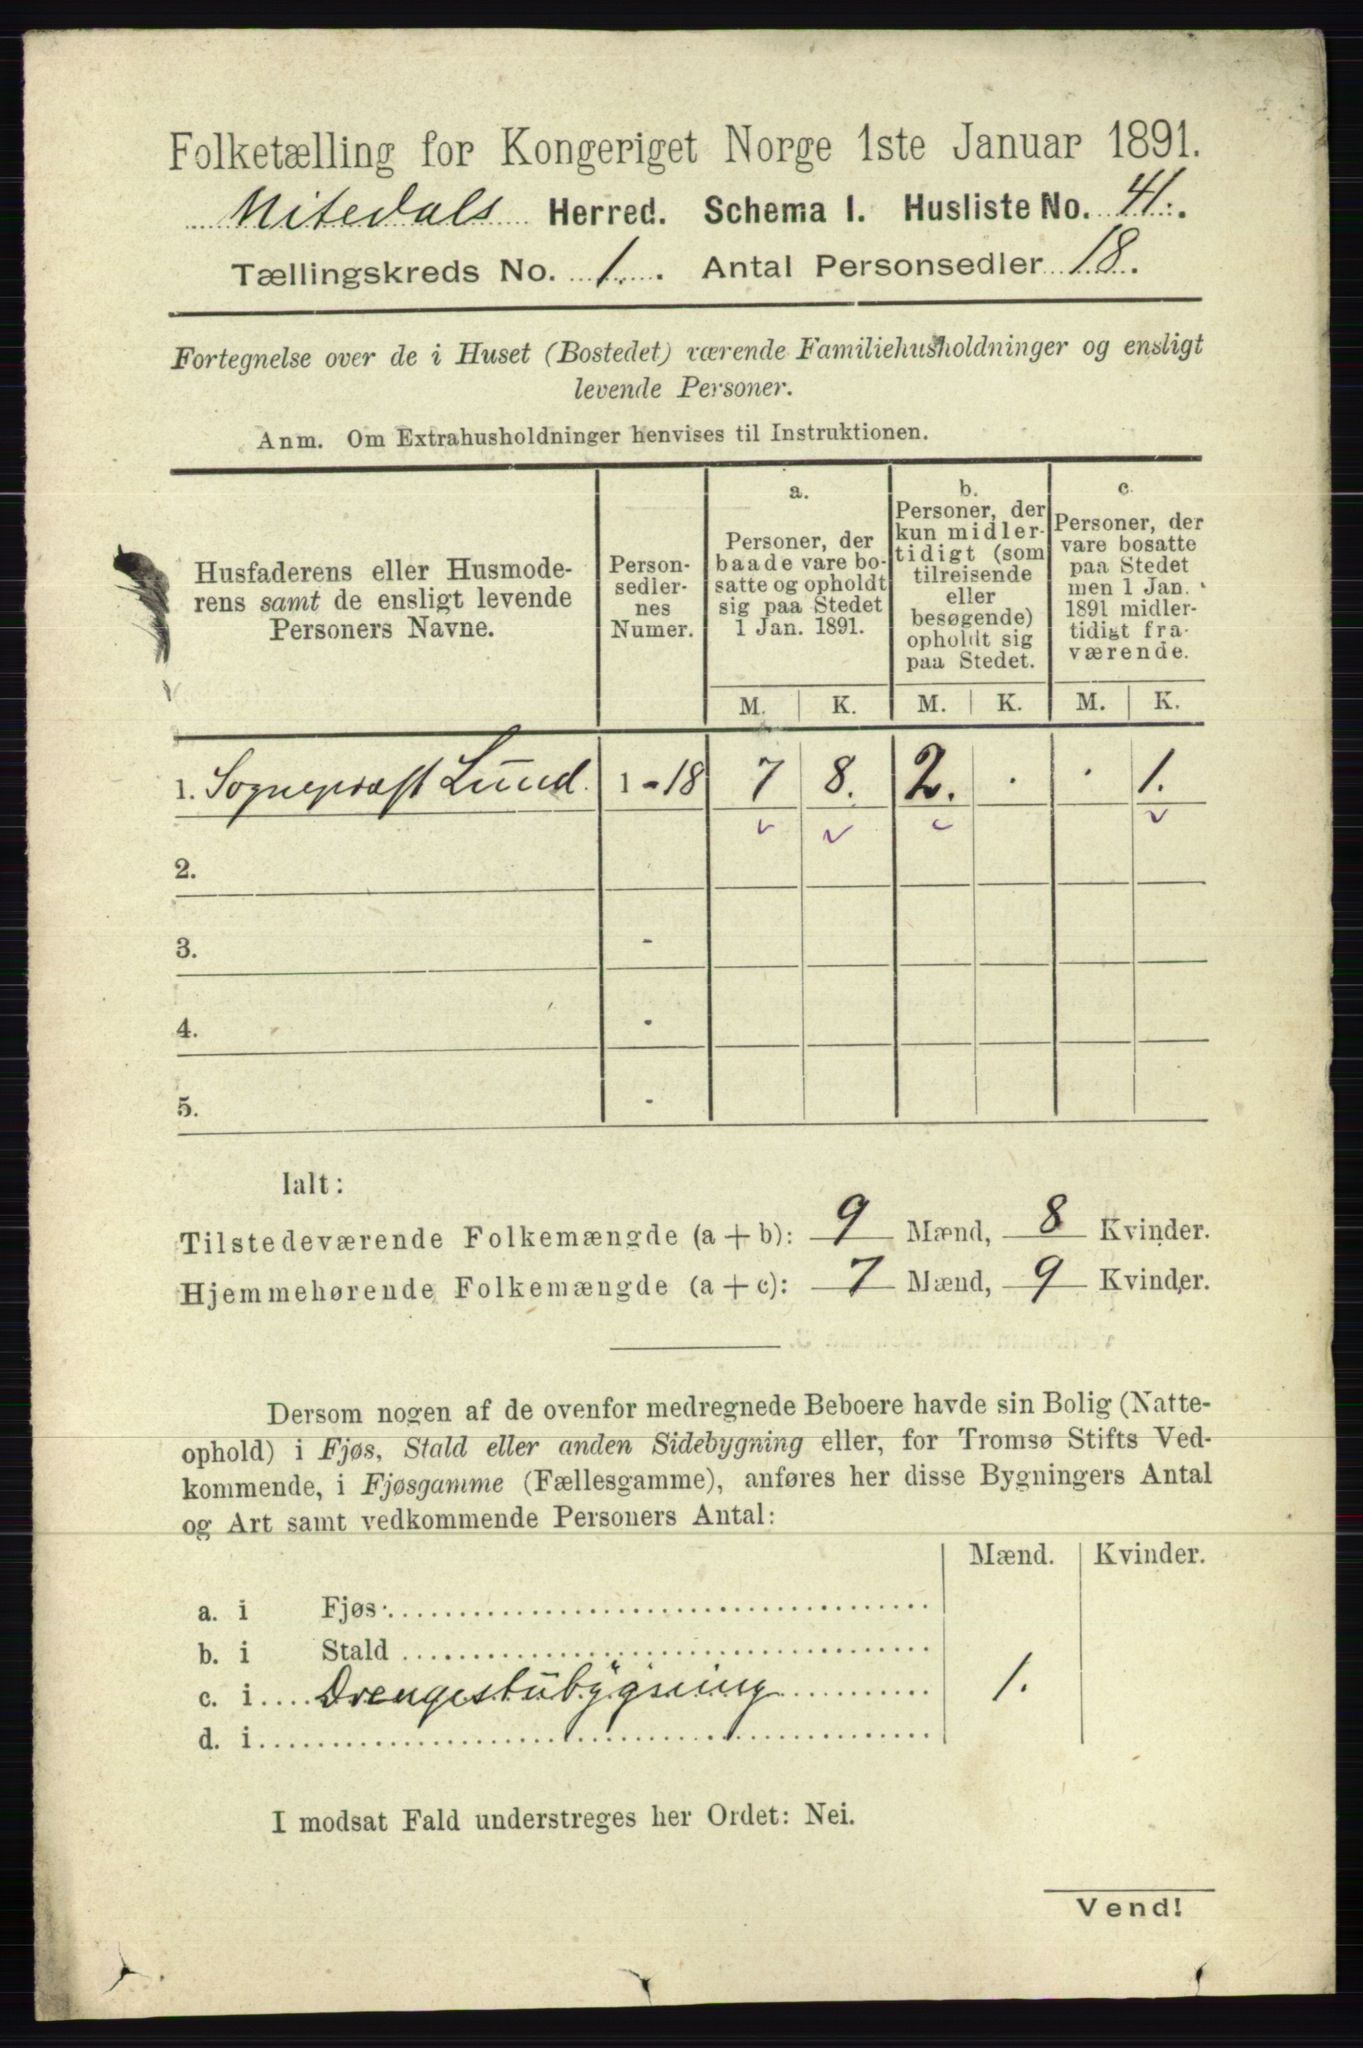 Folketælling for Kongeriget Norge 1ste Januar 1891.
Nitedals Herred. Schema I. Husliste No. 41.
Tællingskreds No. 1. Antal Personsedler 18.
Fortegnelse over de i Huset (Bostedet) værende Familiehusholdninger og ensligt
levende Personer.
Anm. Om Extrahusholdninger henvises til Instruktionen.
Husfaderens eller Husmode-
rens samt de ensligt levende
Personers Navne.
Person-
sedler-
nes
Numer.
a.
Personer, der
baade vare bo-
satte og opholdt
sig paa Stedet
1 Jan. 1891.
b.
Personer, der
kun midler-
tidigt (som
tilreisende
eller
besøgende)
opholdt sig
paa Stedet.
c.
Personer, der
vare bosatte
paa Stedet
men 1 Jan.
1891 midler-
tidigt fra-
værende.
M. K. M. K. M. K.
1. Sognepræst Lund. 1 - 18 7 8. 2. . . 1.
2.
3. -
4. -
5. -
Ialt:
Tilstedeværende Folkemængde (a + b): 9 Mænd, 8 Kvinder.
Hjemmehørende Folkemængde (a + c): 7 Mænd, 9 Kvinder.
Dersom nogen af de ovenfor medregnede Beboere havde sin Bolig (Natte-
ophold) i Fjøs, Stald eller anden Sidebygning eller, for Tromsø Stifts Ved-
kommende, i Fjøsgamme (Fællesgamme), anføres her disse Bygningers Antal
og Art samt vedkommende Personers Antal:
Mænd. Kvinder.
a. i Fjøs
b. i Stald
c. i Drengestubygning 1.
d. i
I modsat Fald understreges her Ordet: Nei.
Vend!